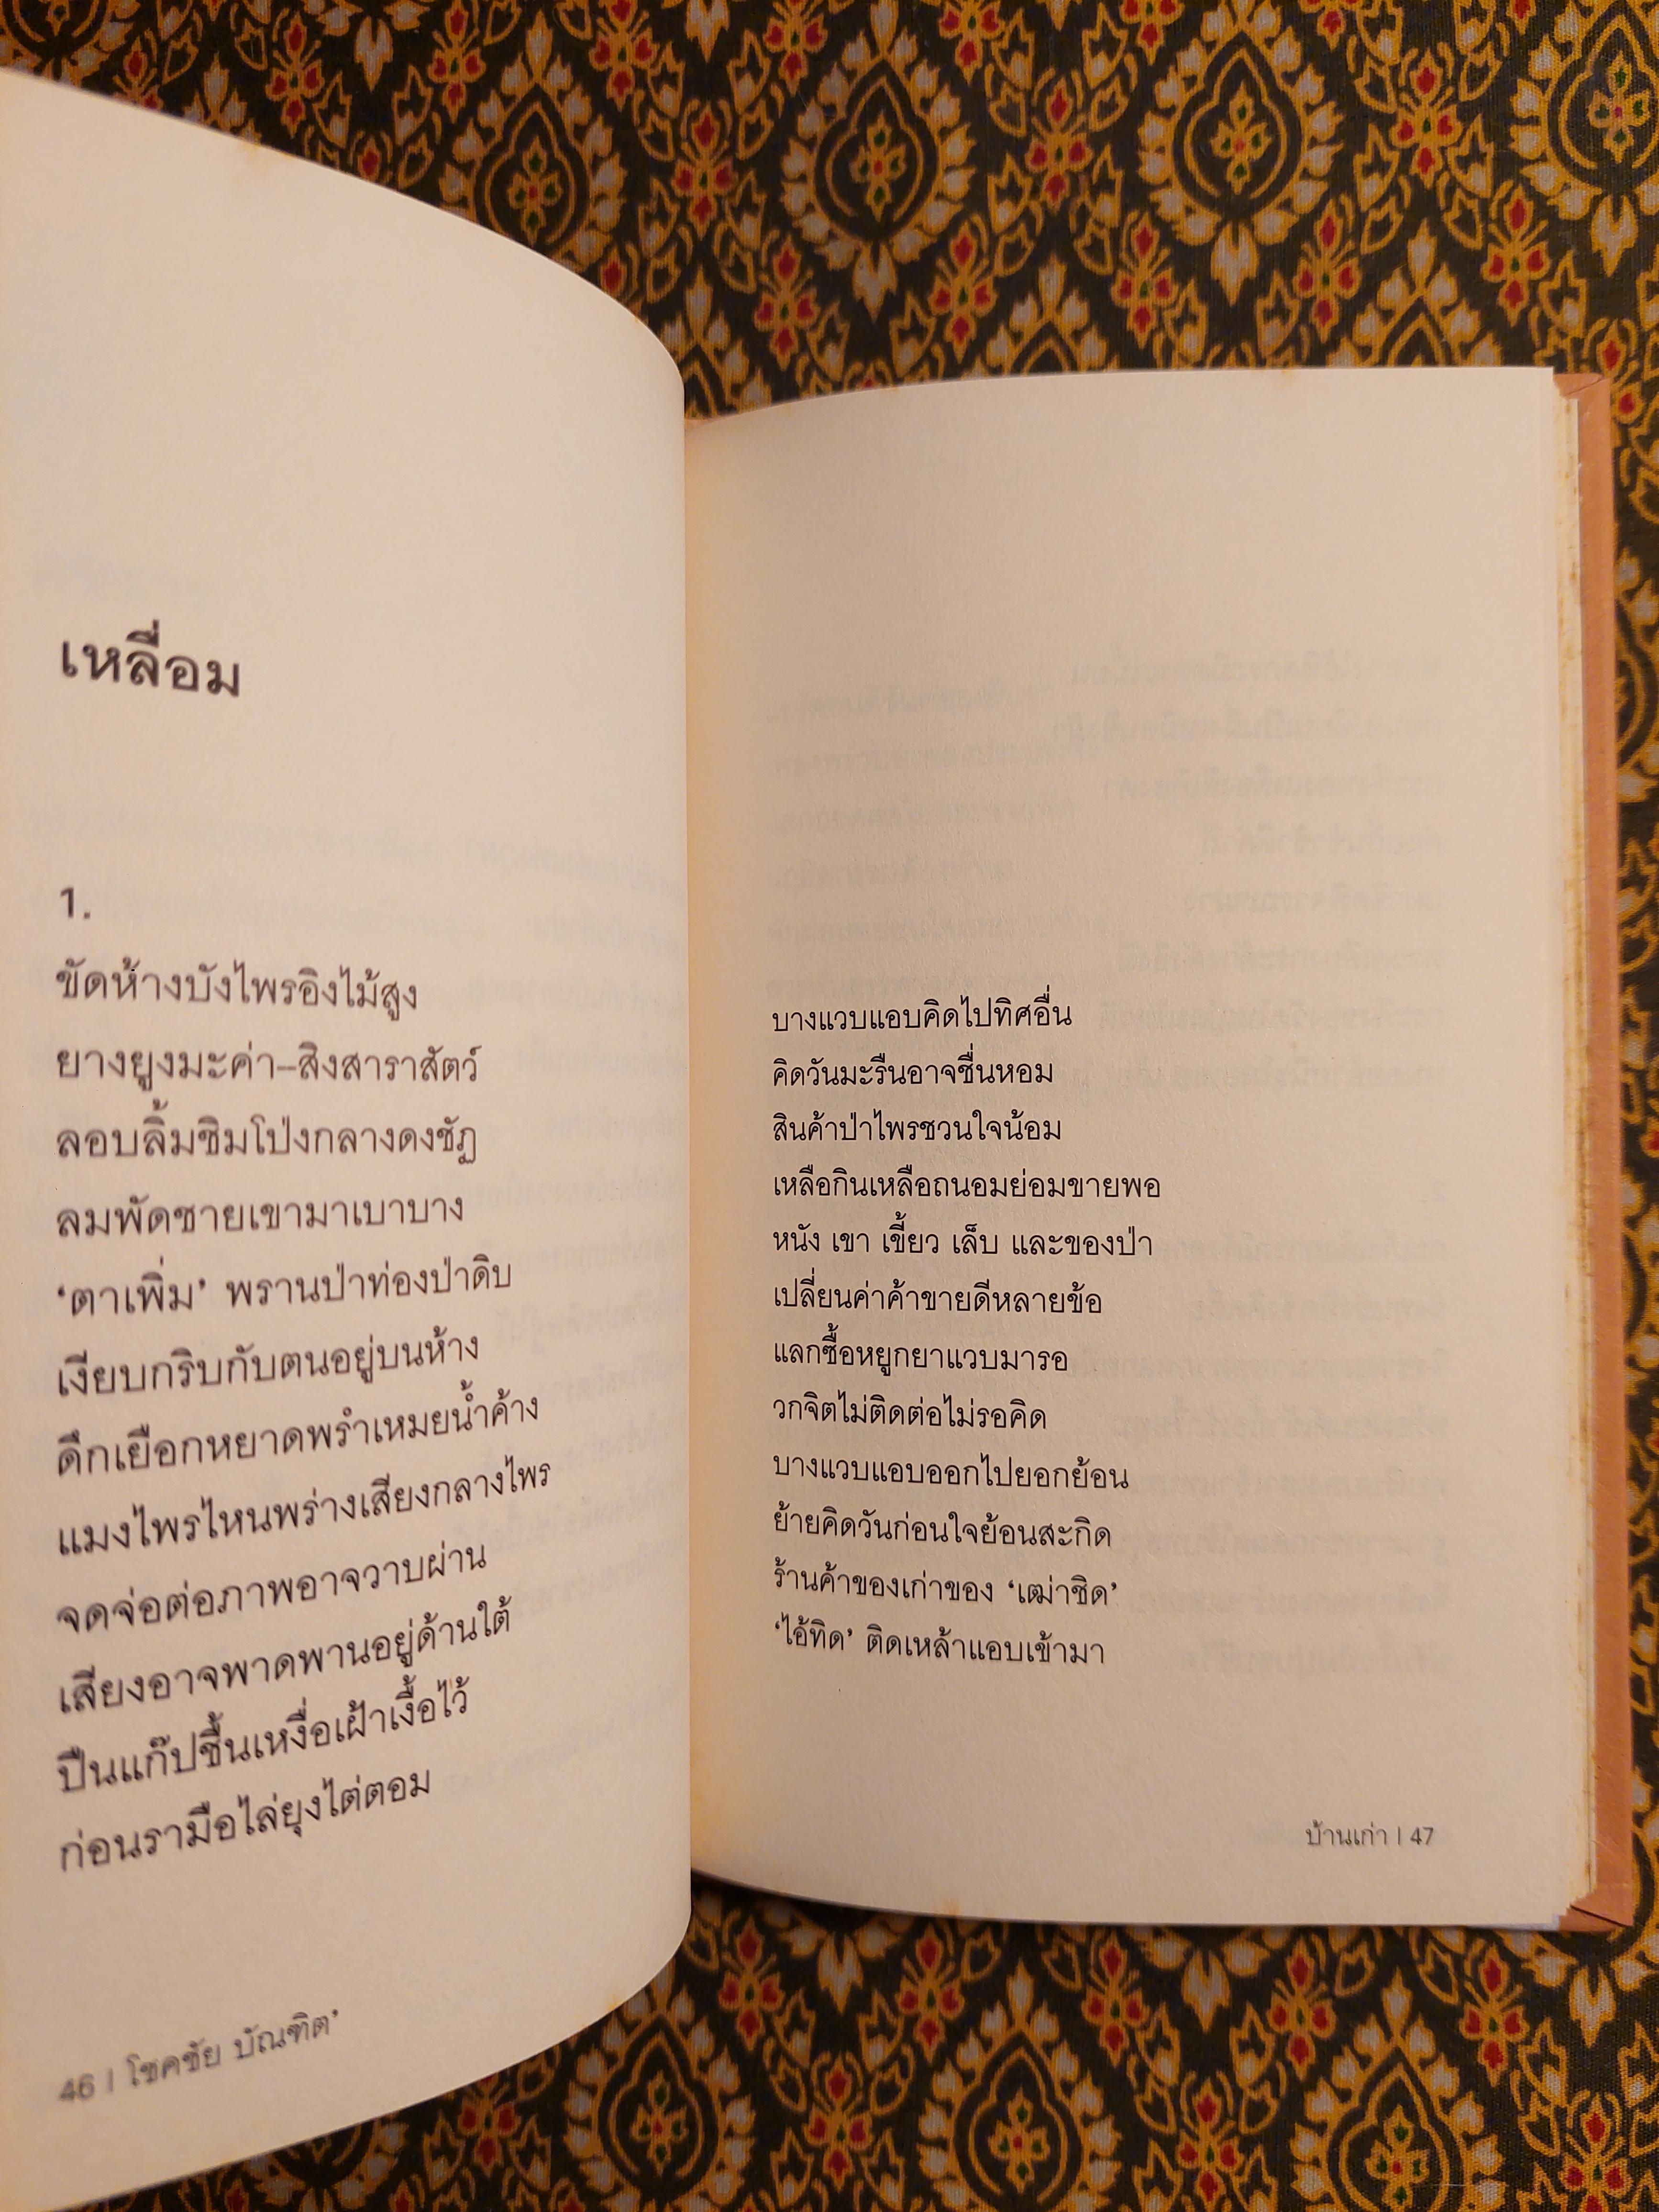 เหลื่อม
1.
ขัดห้างบังไพรอิงไม้สูง
ยางยูงมะค่า–สิงสาราสัตว์
ลอบลิ้มชิมโป่งกลางดงชัฏ
ลมพัดชายเขามาเบาบาง
‘ตาเพิ่ม’ พรานป่าท่องป่าดิบ
เงียบกริบกับตนอยู่บนห้าง
ดึกเยือกหยาดพรำเหมยน้ำค้าง
แมงไพรไหนพร่างเสียงกลางไพร
จดจ่อต่อภาพอาจวาบผ่าน
เสียงอาจพาดพานอยู่ด้านใต้
ปืนแก๊ปชื้นเหงื่อเฝ้าเงื้อไว้
ก่อนรามือไล่ยุงไต่ตอม
46 | โชคชัย บัณฑิต’
บางแวบแอบคิดไปทิศอื่น
คิดวันมะรืนอาจชื่นหอม
สินค้าป่าไพรชวนใจน้อม
เหลือกินเหลือถนอมย่อมขายพอ
หนัง เขา เขี้ยว เล็บ และของป่า
เปลี่ยนค่าค้าขายดีหลายข้อ
แลกซื้อหยูกยาแวบมารอ
วกจิตไม่ติดต่อไม่รอคิด
บางแวบแอบออกไปยอกย้อน
ย้ายคิดวันก่อนใจย้อนสะกิด
ร้านค้าของเก่าของ ‘เฒ่าชิด’
‘ไอ้ทิด’ ติดเหล้าแอบเข้ามา
บ้านเก่า | 47